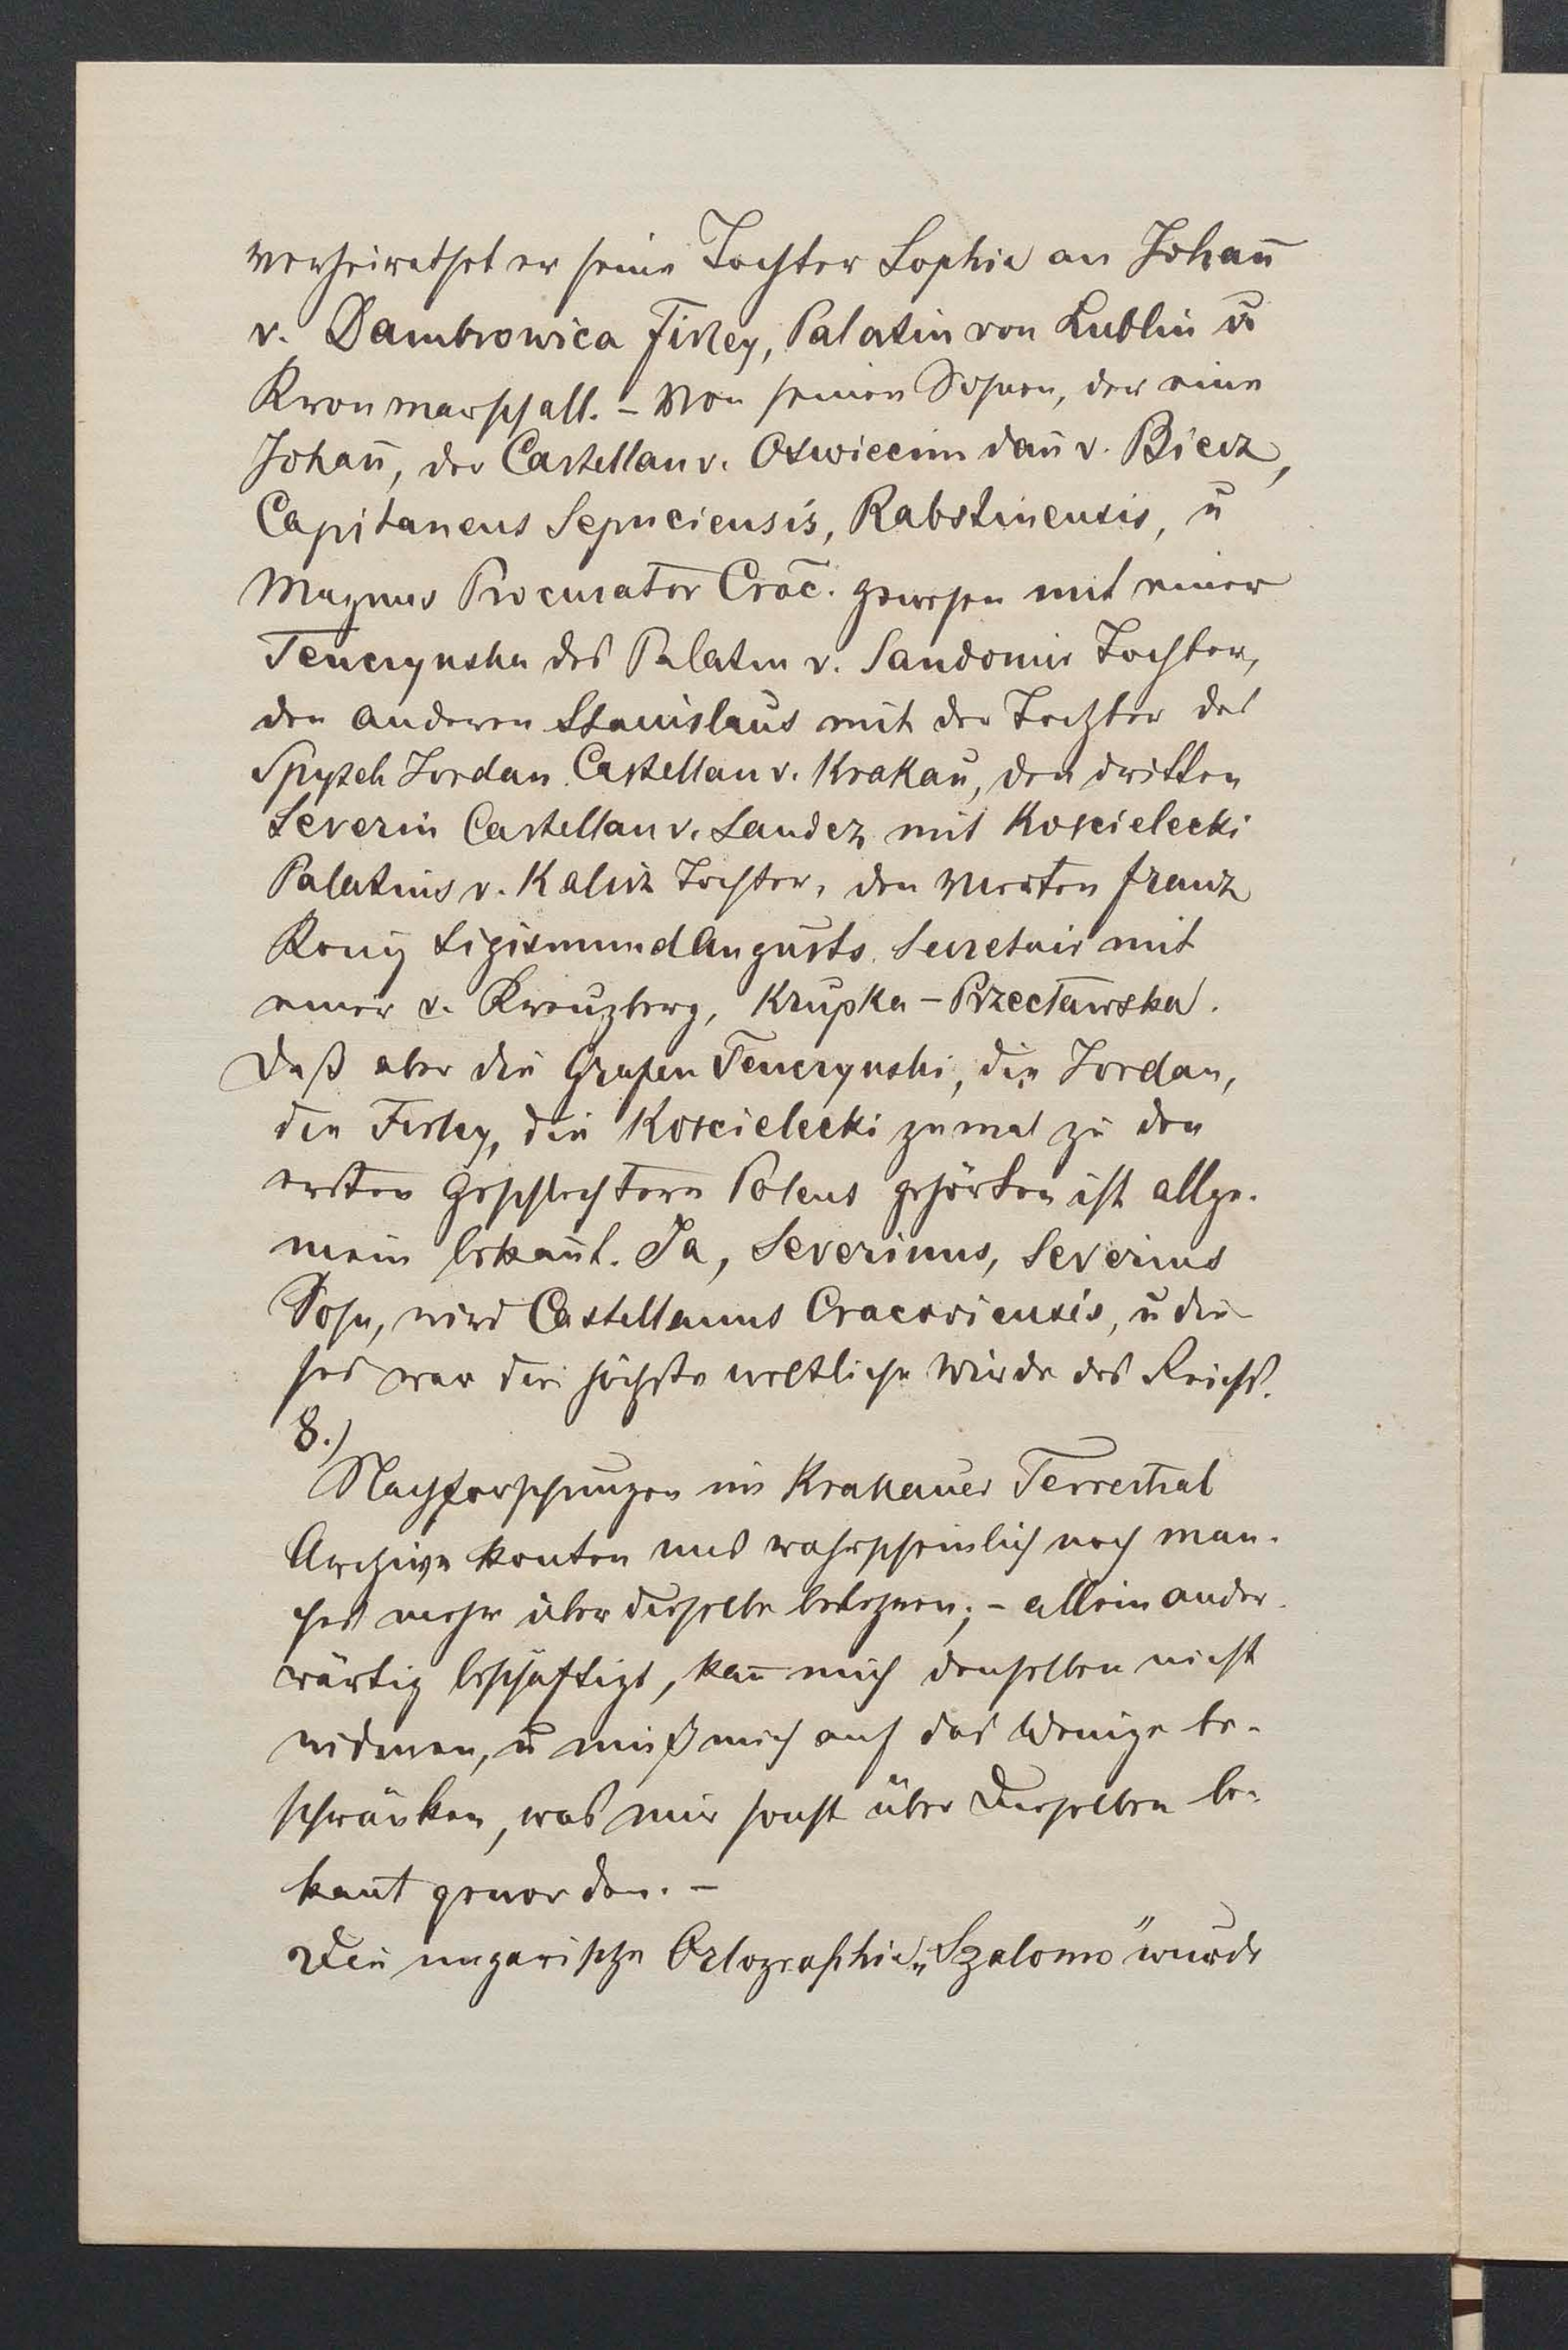 verheirathet er seine Tochter Sophia an Johañ
v. Dambrowica Firley, Palatin von Lublin u
Kronmarschall. – Von seinen Söhnen, der eine
Johañ, der Castellan v. Oswiecim dañ v. Biecz,
Capitaneus Sepnciensis, Rabstinensis, u
Magnus Procurator Crac̄. gewesen mit einer
Tenczynska des Palatin v. Sandomir Tochter,
den anderen Stanislaus mit der Tochter des
Spytek Jordan Castellan v. Krakau, den dritten
Severin Castellan v. Sandez mit Koscielecki
Palatins v. Kalisz Tochter, den vierten Franz
König Sigismund Augusts Secretair mit
einer v. Kreuzberg, Krupka-Przecławska.
Daß aber die Grafen Tenczynski, die Jordan,
die Firley, die Koscielecki zumal zu den
ersten Geschlechtern Polens gehörten ist allge-
mein bekañt. Ja, Severinus, Severins
Sohn, wird Castellanus Cracoviensis, u die-
ses war die höchste weltliche Würde des Reichs.
8.)
Nachforschungen im Krakauer Terrestral
Archive konten uns wahrscheinlich noch man-
ches mehr über dieselbe belehren; – allein ander-
wärtig beschäftigt, kañ mich denselben nicht
widmen, u muß mich auf das Wenige be-
schränken, was mir sonst über dieselben be-
kañt geworden. –
Die ungarische Ortographie „Szalomo" wurde